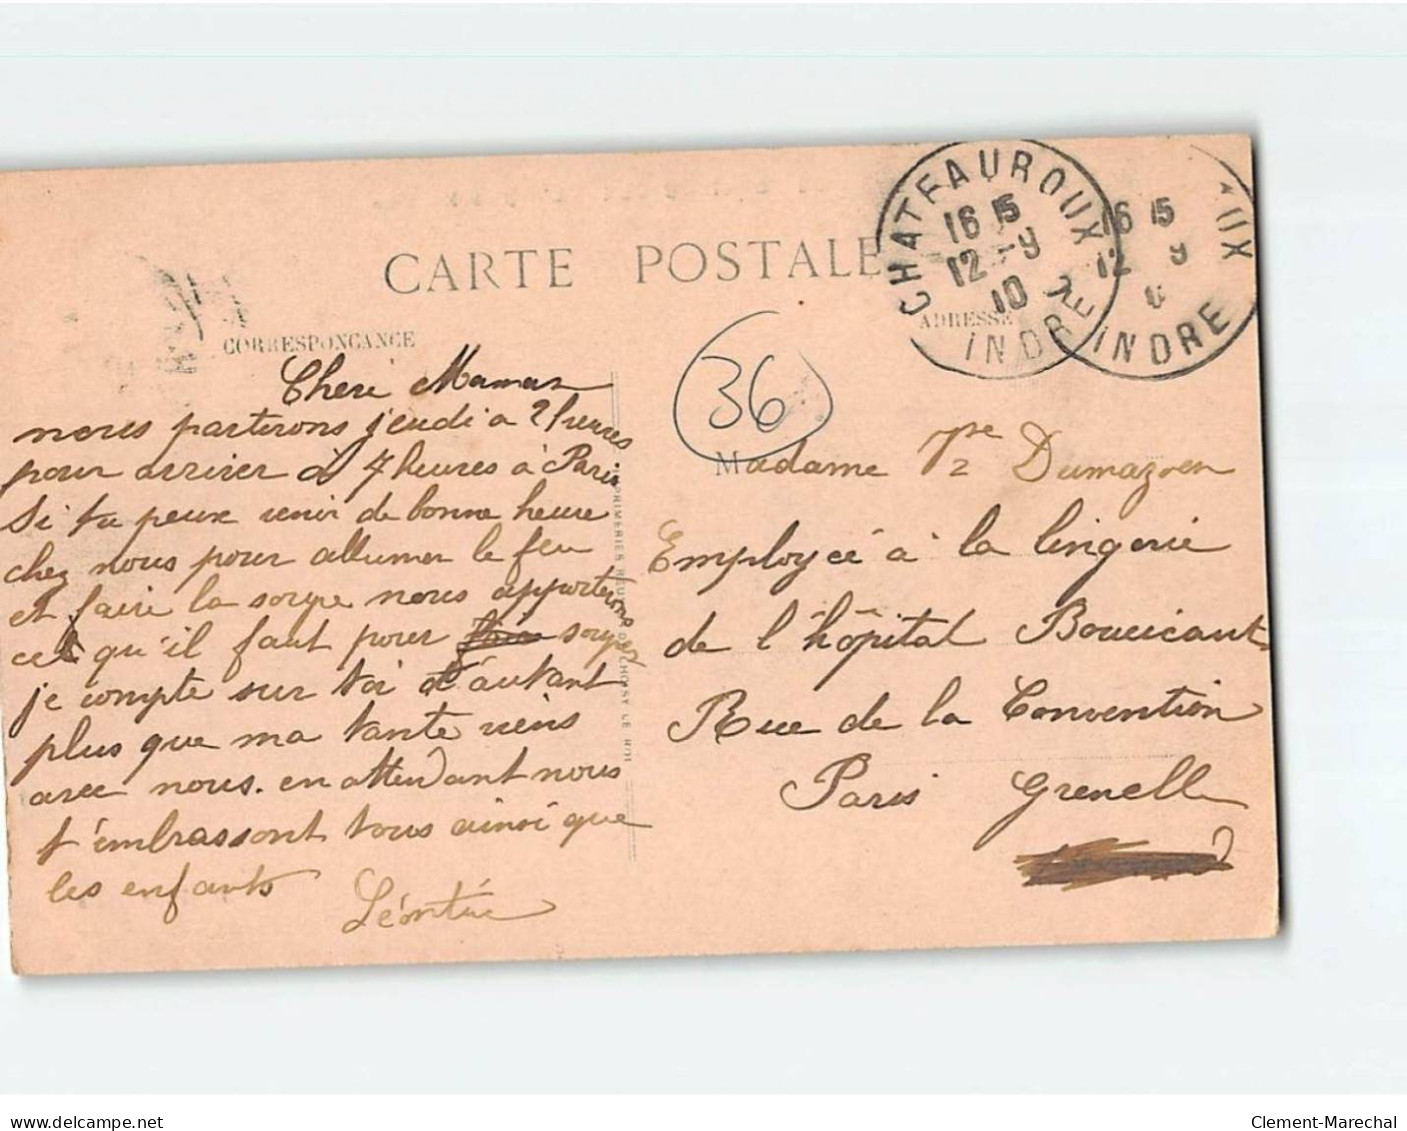 CARTE POSTALE
CORRESPONDANCE
Chere Maman
nous partirons jeudi a 2 heures
pour arriver à 7 heures à Paris
Si tu peux venir de bonne heure
chez nous pour allumer le feu
et faire la soupe nous apporterons
ce qu'il faut pour souper
je compte sur toi d'autant
plus que ma tante viens
avec nous. en attendant nous
t'embrassont tous ainsi que
les enfants
Léontine
IMPRIMERIES RÉUNIES DE CHOISY LE ROI
CHATEAUROUX
16 15
12 - 9
10
INDRE
UX
16 15
12 9
INDRE
ADRESSE
36
Madame Vve Dumazoen
Employeé à la lingerie
de l'hôpital Boucicaut
Rue de la Convention
Paris Grenelle
delcampe.net
Clement-Marechal